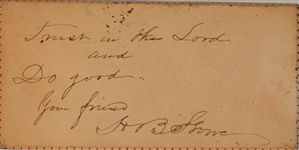 Trust in the Lord
and
Do good.
Your friend
H B Stowe